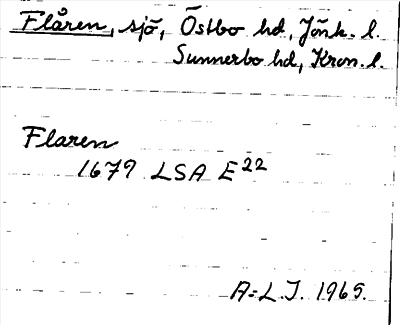 Flåren, sjö, Östbo hd, Jönk. l.
Sunnerbo hd, Kron. l.
Flaren
1679 LSA E22
A:L.J. 1965.